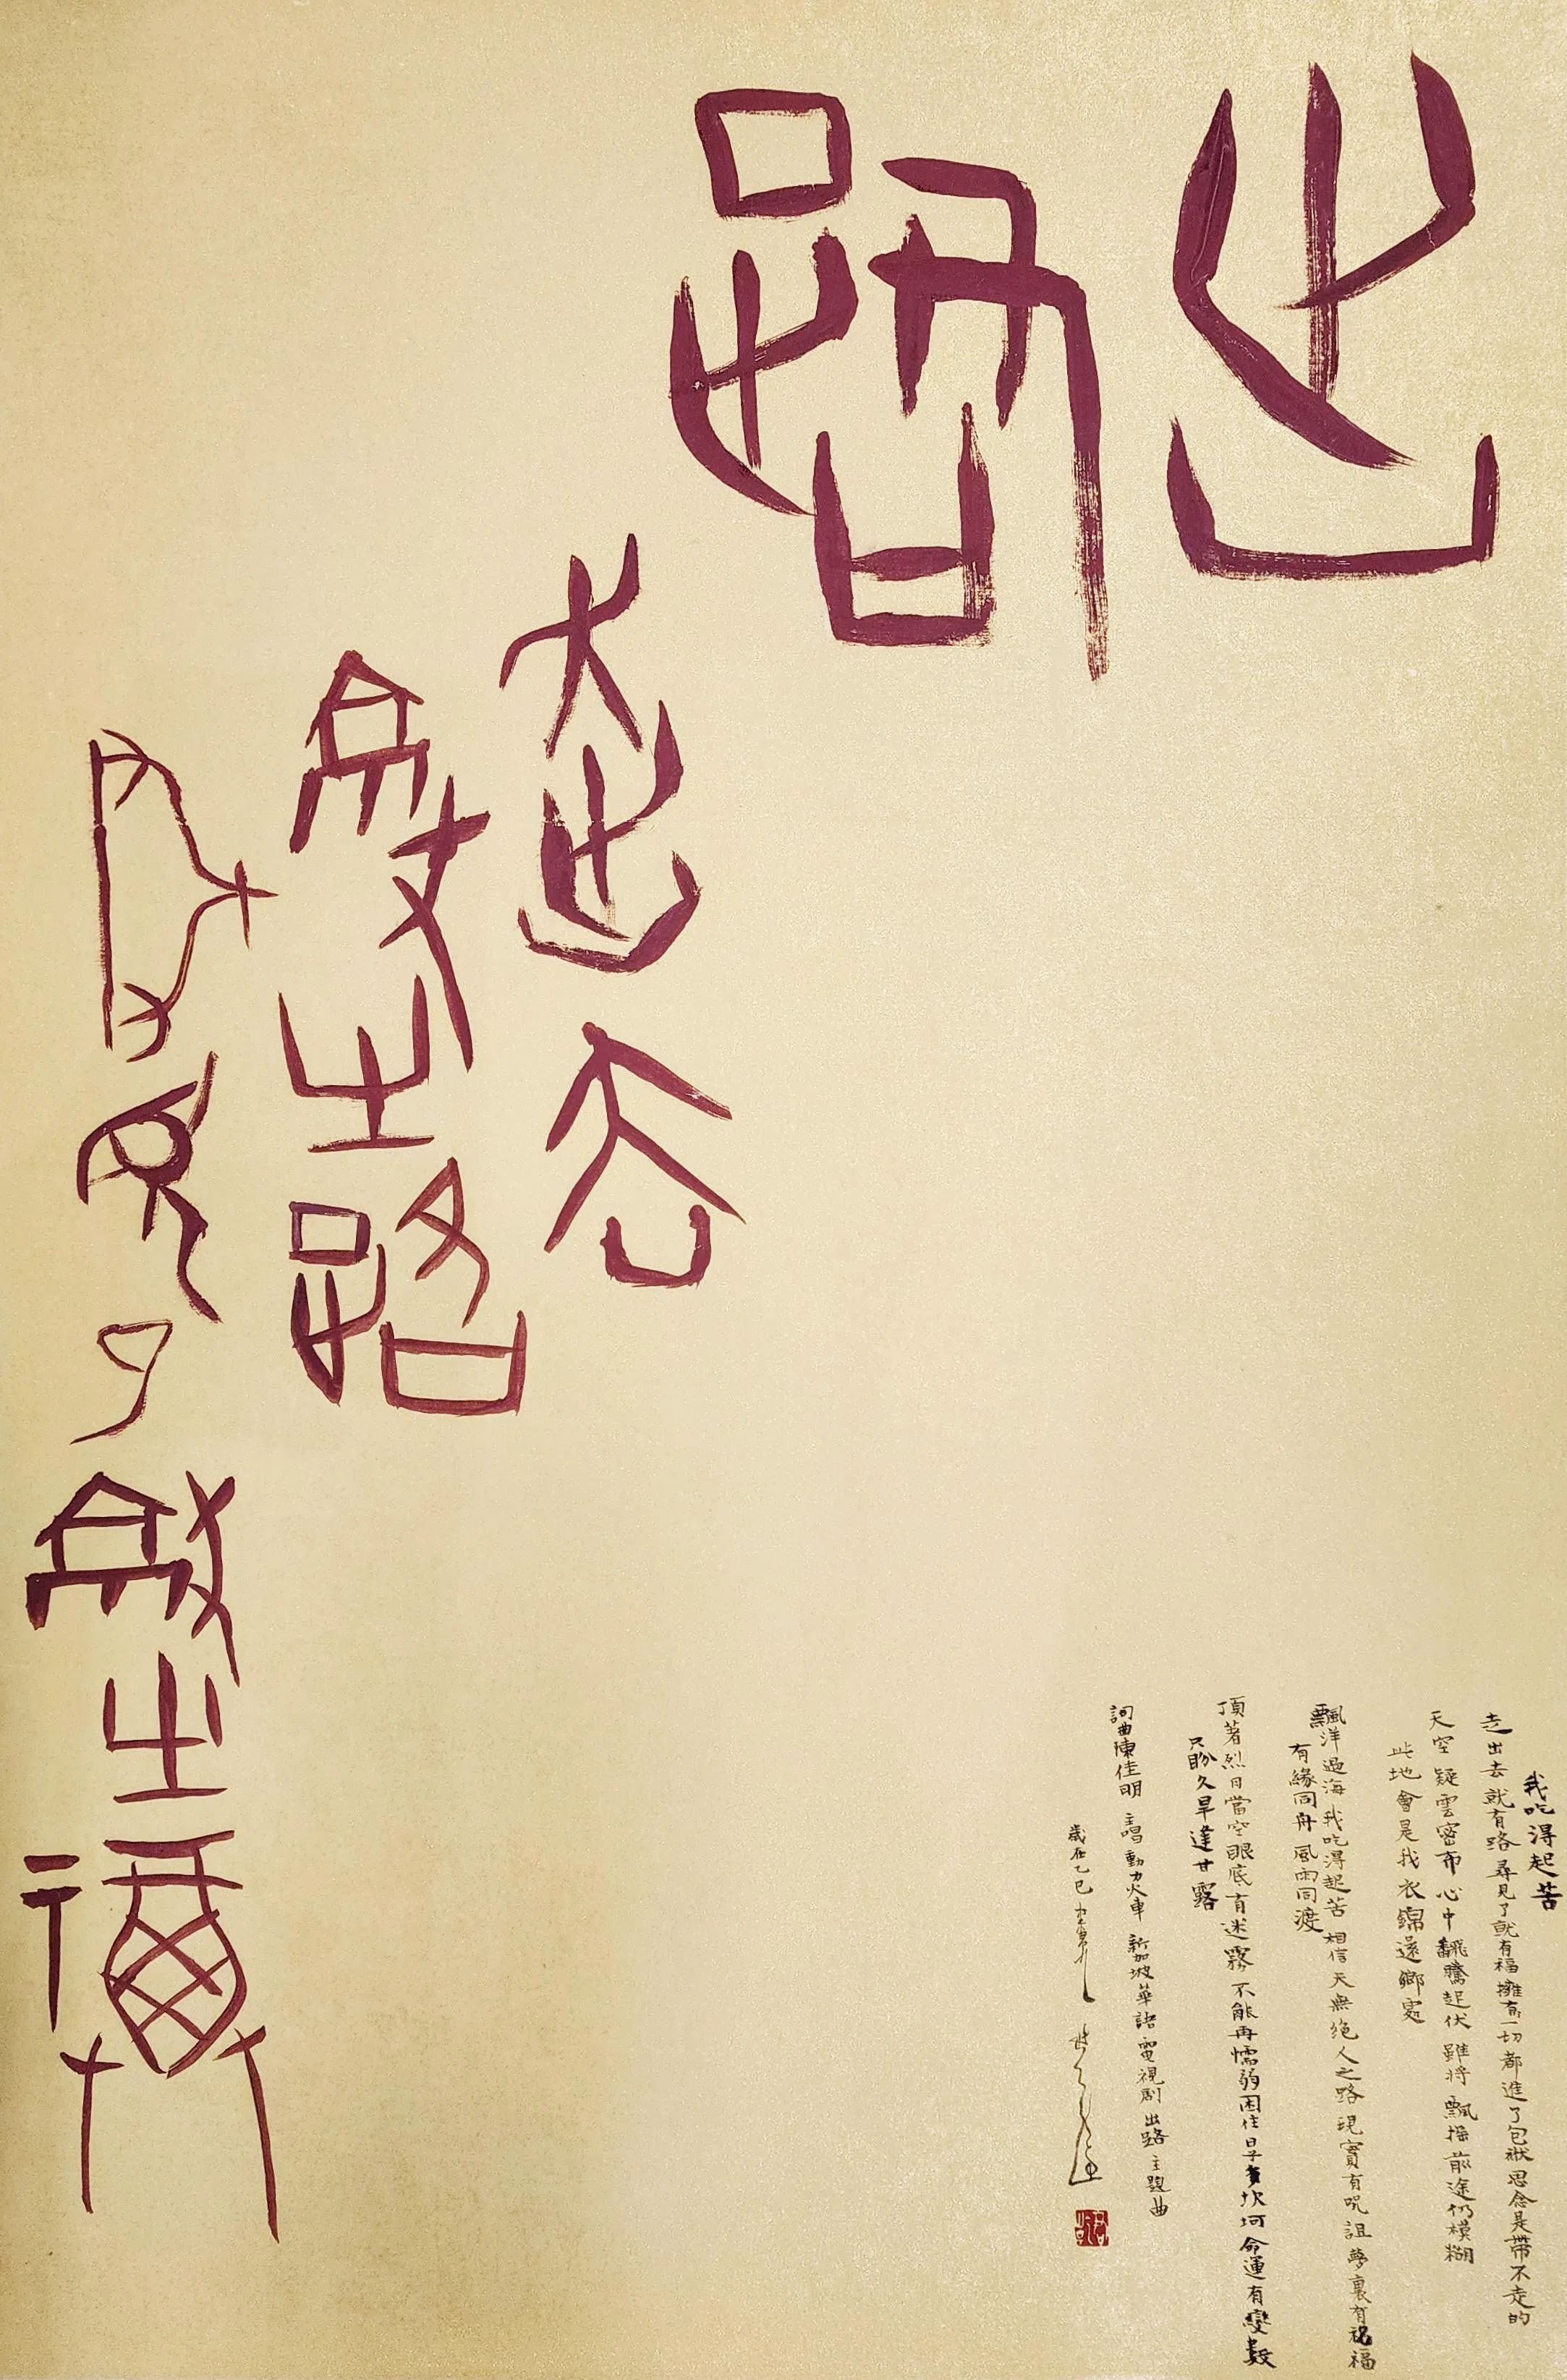 出路
走出去
就有路
尋見了就有福
我吃得起苦
走出去 就有路 尋見了就有福 擁有一切都進了包袱 思念是帶不走的
天空疑雲密布 心中翻騰起伏 雖將 飄揚 前途仍模糊
此地會是我衣錦還鄉處
飄洋過海 我吃得起苦 相信天無絕人之路 現實有咒詛 夢裏有祝福
有緣同舟 風雨同渡
頂著烈日當空 眼底有迷霧 不能再懦弱困住 日子多坎坷 命運有變數
只盼久旱逢甘露
詞曲陳佳明 主唱動力火車 新加坡華語電視劇 出路 主題曲
歲在乙巳